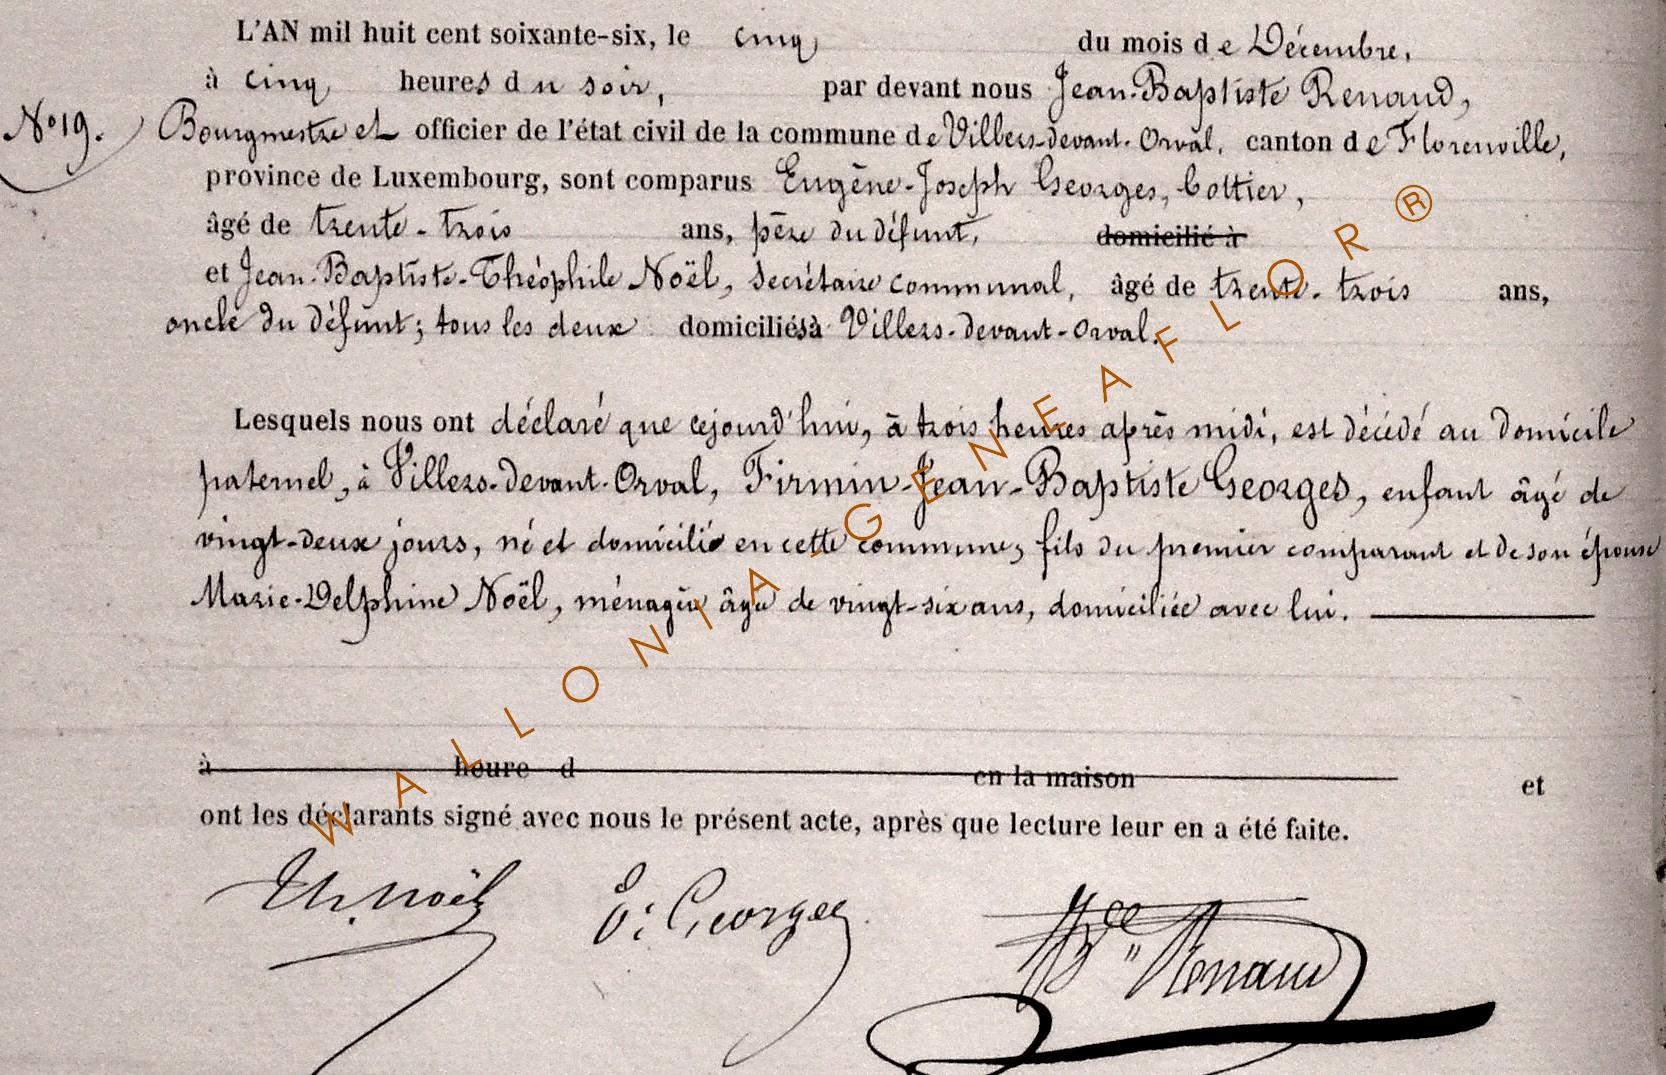 L'AN mil huit cent soixante-six, le cinq du mois de Décembre,
à cinq heures du soir, par devant nous Jean-Baptiste Renaud,
N° 19. Bourgmestre et officier de l'état civil de la commune de Villers-devant-Orval, canton de Florenville,
province de Luxembourg, sont comparus Eugène-Joseph Georges, Cottier,
âgé de trente-trois ans, père du défunt, domicilié à
et Jean-Baptiste-Théophile Noël, Secrétaire communal, âgé de trente-trois ans,
oncle du défunt; tous les deux domiciliés à Villers-devant-Orval.
Lesquels nous ont déclaré que cejourd'hui, à trois heures après midi, est décédé au domicile
paternel, à Villers-devant-Orval, Firmin-Jean-Baptiste Georges, enfant âgé de
vingt-deux jours, né et domicilié en cette commune, fils du premier comparant et de son épouse
Marie-Delphine Noël, ménagère âgée de vingt-six ans, domiciliée avec lui.
à heure d en la maison et
ont les déclarants signé avec nous le présent acte, après que lecture leur en a été faite.
Th. Noël E: Georges Renaud
WALLONIA-GENEAFLOR®